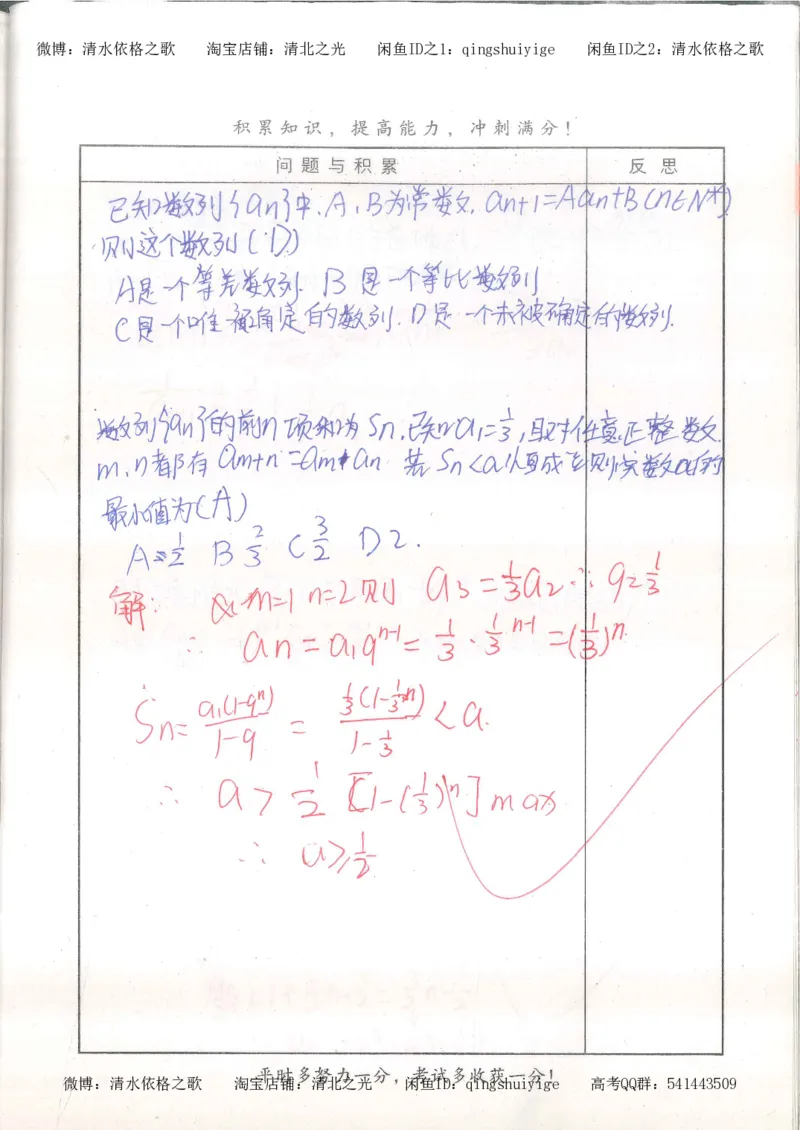 微博：清水依格之歌 淘宝店铺：清北之光 闲鱼ID之1：qingshuiyige 闲鱼ID之2：清水依格之歌
积累知识，提高能力，冲刺满分！
问题与积累 反思
已知数列{an}中，A，B为常数，an+1=Aan+B(n∈N*)
则这个数列(D)
A是一个等差数列. B 是一个等比数列
C是一个唯一确定的数列. D是一个未被确定的数列.
数列{an}的前n项和为Sn，已知a1=1/3，且对任意正整数
m，n都有 am+n=am·an. 若 Sn<a恒成立则实数a的
最小值为(A)
A 1/2 B 2/3 C 3/2 D 2.
解： 令m=1 n=2则 a3=1/3a2 ∴ q=1/3
∴ an=a1q^n-1=1/3·1/3^n-1=(1/3)^n.
Sn=a1(1-q^n)/1-q = 1/3(1-1/3^n)/1-1/3 <a.
∴ a>1/2[1-(1/3)^n]max
∴ a≥1/2
平时多努力一分，考试多收获一分！
微博：清水依格之歌 淘宝店铺：清北之光 闲鱼ID：qingshuiyige 高考QQ群：541443509